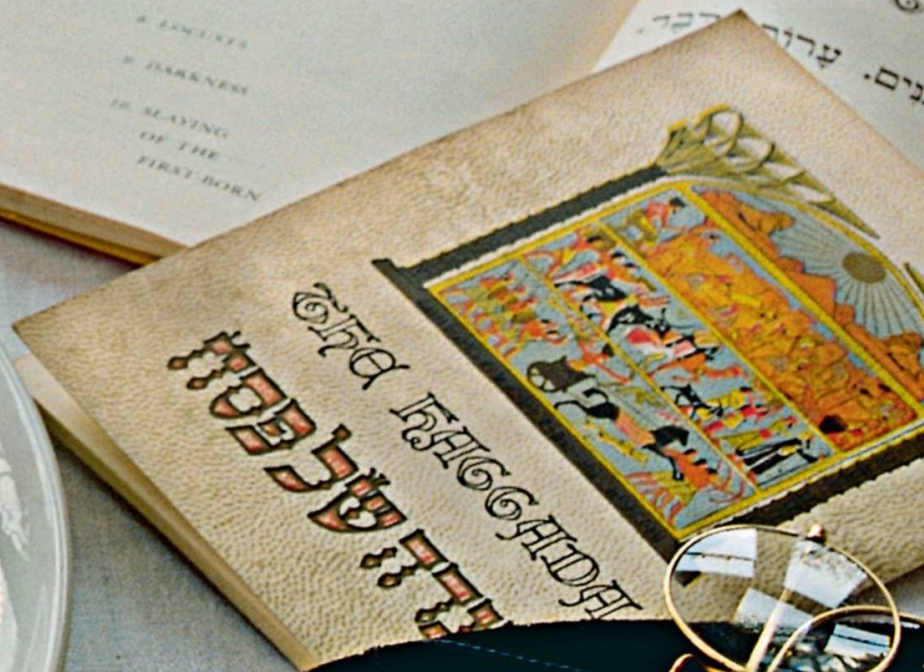 8. LOCUSTS
9. DARKNESS
10. SLAYING
OF THE
FIRST-BORN
נים. ערוב
The HAGGADA
דה של פסח